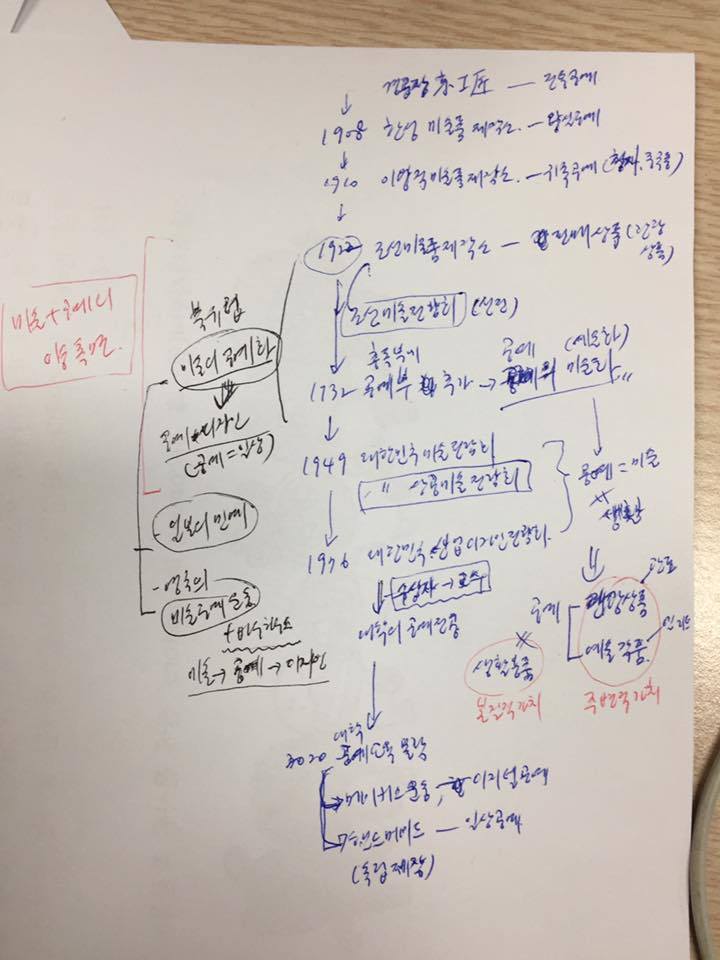 京工匠 — 전승공예
1908 한성미술품제작소 — 왕실공예
1910 이왕직미술품제작소 — 귀족공예
1922 조선미술품제작소 — 판매상품 (관광상품)
조선미술전람회 (선전)
1932 공예부 추가 → 공예의 미술화 (예술화)
1949 대한민국미술전람회
" 상공미술전람회
공예 = 미술
생활
1976 대한민국 산업디자인전람회
수상자 → 교수
대학의 공예전공
공예
관광상품
예술작품
생활용품
본질적 가치
주변적 가치
대학
2020 공예교육 몰락
메이커스운동, 디지털공예
핸드메이드 — 일상공예
(독립제작)
미술+공예의
이중측면
북유럽
미술의 공예화
공예 디자인
(공예=일상)
일본의 민예
영국의
미술공예운동
+ 바우하우스
미술 → 공예 → 디자인